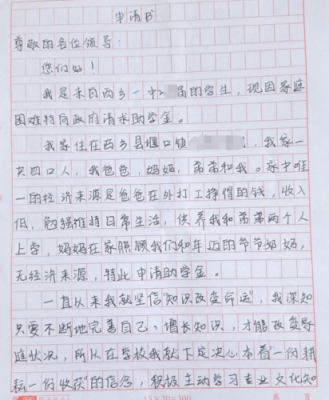 申请书
尊敬的各位领导：
您们好！
我是来自西乡一中 届的学生，现因家庭
困难特向政府请求助学金。
我家住在西乡县堰口镇 ，我家一
共四口人，我爸爸，妈妈，弟弟和我。家中唯
一的经济来源是爸爸在外打工挣得的钱，收入
低，勉强维持日常生活，供养我和弟弟两个人
上学，妈妈在家照顾我们和年迈的爷爷奶奶，
无经济来源，特此申请助学金。
一直以来我就坚信"知识改变命运"，我深知
只要不断地完善自己，增长知识，才能改变家
庭状况，所以在学校我就下定决心本着"一份耕
耘一份收获"的信念，积极主动学习专业文化知
15×20=300